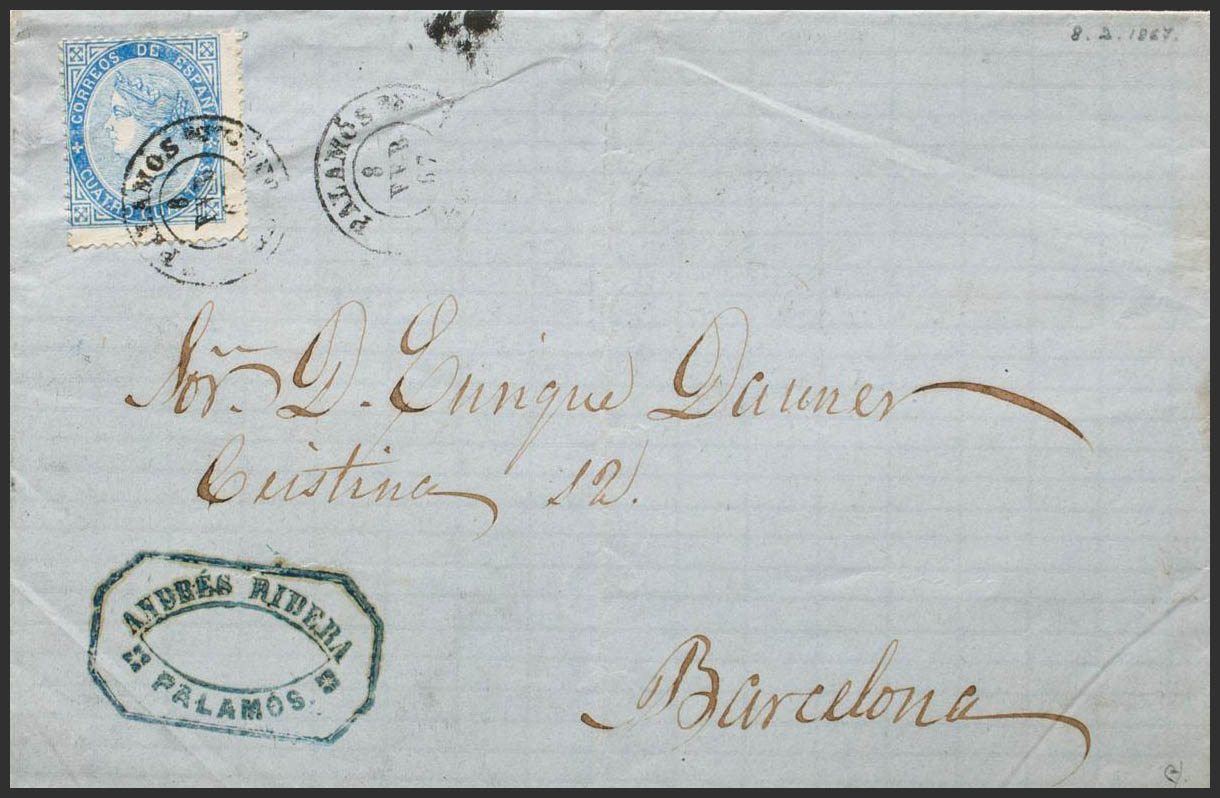 8. 2. 1867.
CORREOS DE ESPAÑA
CUATRO CUARTOS
PALAMÓS
8 FEB
PALAMÓS
8
FEB
67
Sor. D. Enrique Dauner
Cristina 12.
ANDRÉS RIBERA
PALAMÓS.
Barcelona